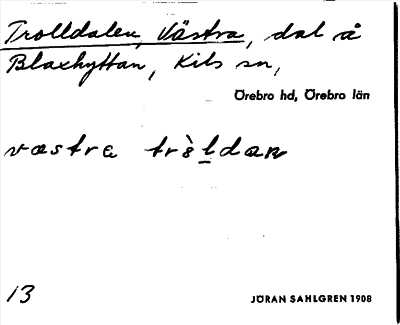 Trolldalen, Västra, dal å
Blaxhyttan, Kils sn,
Örebro hd, Örebro län
västra tròldan
13
JÖRAN SAHLGREN 1908